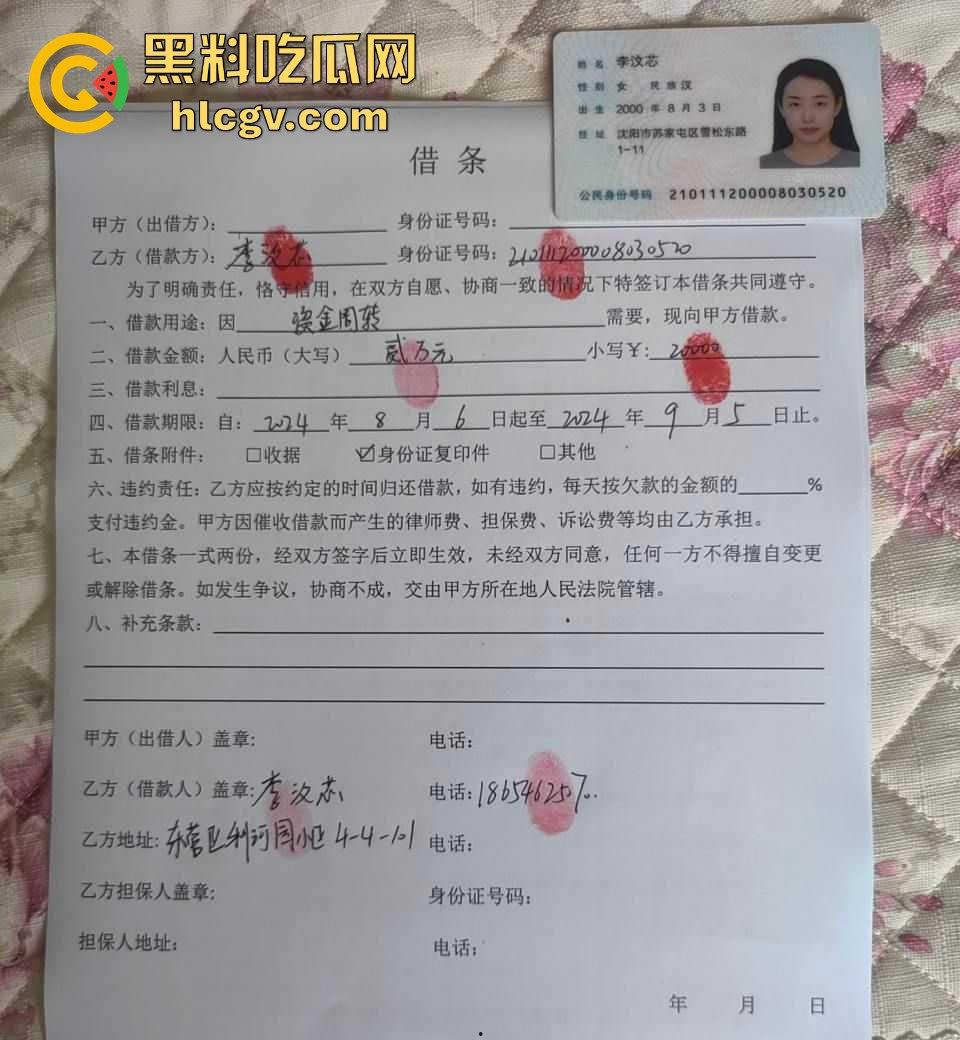 黑料吃瓜网
hlcgv.com
姓名
性别 女 民族 汉
出生
住址
公民身份号码
借条
甲方（出借方）： 身份证号码：
乙方（借款方）： 身份证号码：
为了明确责任，恪守信用，在双方自愿、协商一致的情况下特签订本借条共同遵守。
一、借款用途：因 资金周转 需要，现向甲方借款。
二、借款金额：人民币（大写） 贰万元 小写￥: 20000
三、借款利息：
四、借款期限：自： 2024 年 8 月 6 日起至 2024 年 9 月 5 日止。
五、借条附件： □收据 ☑身份证复印件 □其他
六、违约责任：乙方应按约定的时间归还借款，如有违约，每天按欠款的金额的______%
支付违约金。甲方因催收借款而产生的律师费、担保费、诉讼费等均由乙方承担。
七、本借条一式两份，经双方签字后立即生效，未经双方同意，任何一方不得擅自变更
或解除借条。如发生争议，协商不成，交由甲方所在地人民法院管辖。
八、补充条款：
甲方（出借人）盖章: 电话：
乙方（借款人）盖章: 电话:
乙方地址: 电话：
乙方担保人盖章: 身份证号码：
担保人地址: 电话：
年 月 日